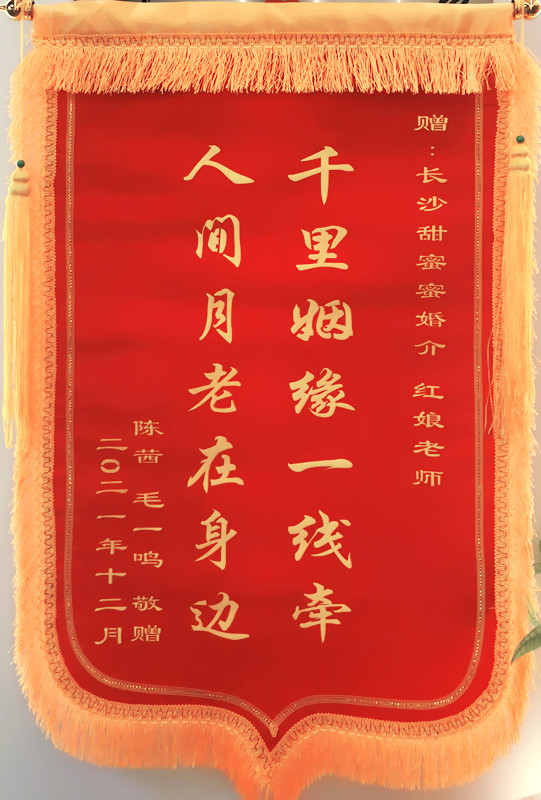 赠：长沙甜蜜蜜婚介 红娘老师
千里姻缘一线牵
人间月老在身边
陈茜 毛一鸣 敬赠
二〇二一年十二月